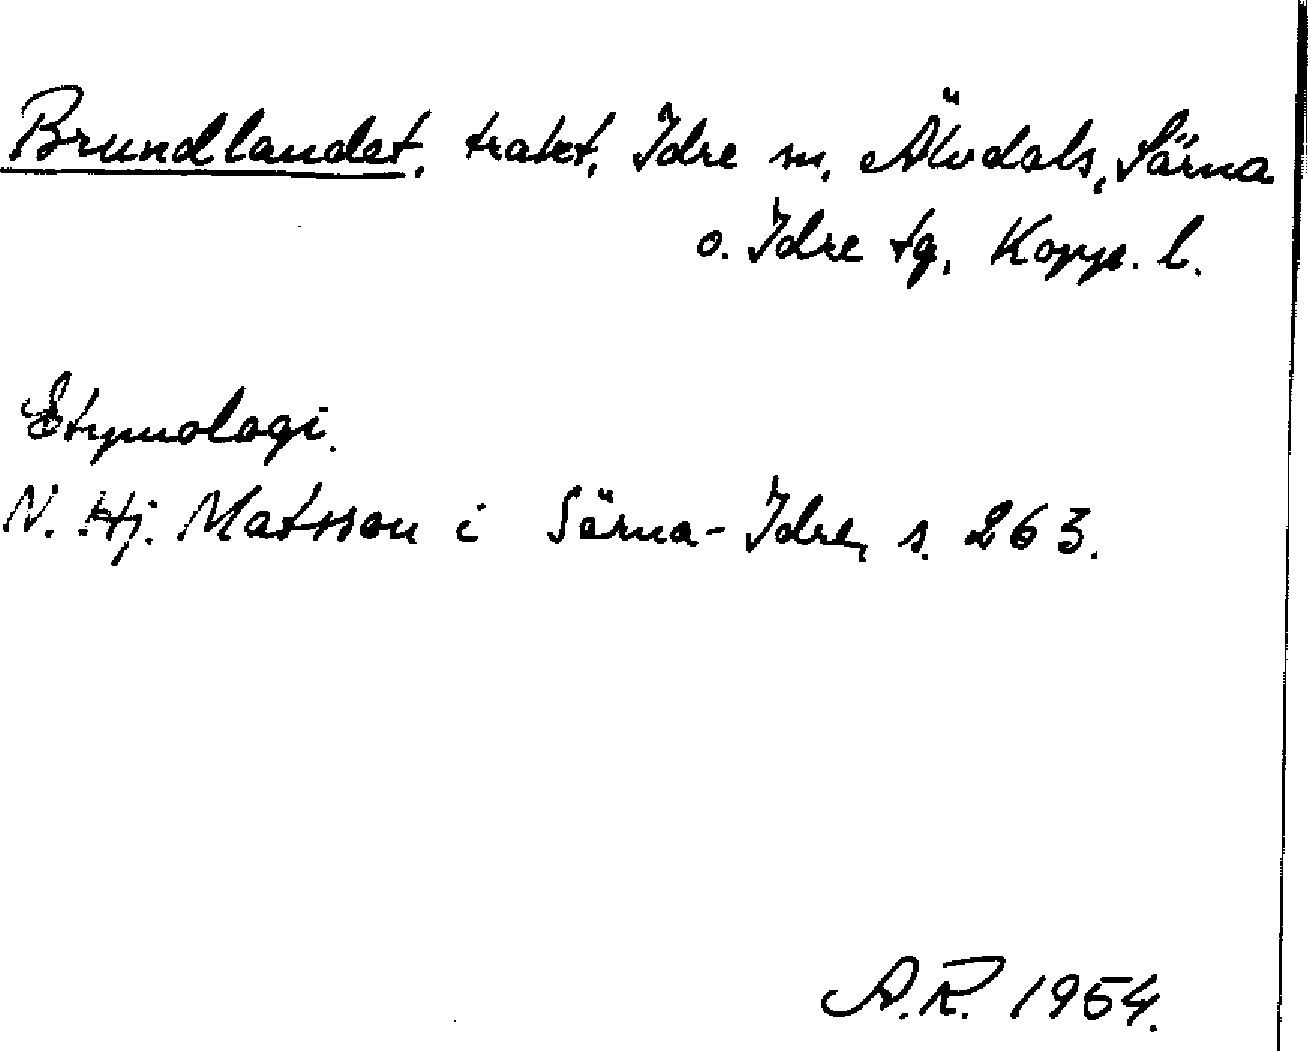 Brundlandet, trakt, Idre sn, Älvdals, Särna
o. Idre tg, Kopp. l.
Etymologi.
N. Hj. Matsson i Särna-Idre, s. 263.
A.R. 1954.